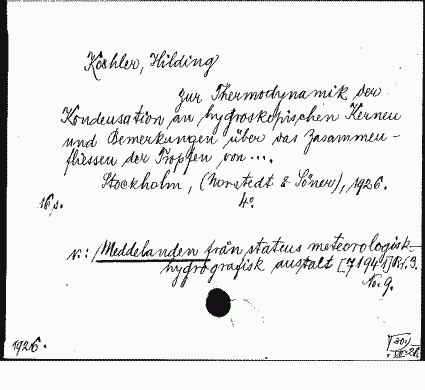 Koehler, Hilding
Zur Thermodynamik der
Kondensation an hygroskopischen Kernen
und Bemerkungen über das Zusammen-
fliessen der Tropfen von ....
Stockholm, (Norstedt & Söner), 1926.
16 s. 4o.
v.: Meddelanden från statens meteorologisk-
hydrografisk anstalt [71941] Bd. 3.
No. 9.
1926.